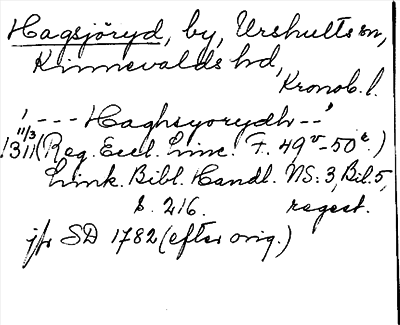 Hagsjöryd, by, Urshults sn,
Kinnevalds hd,
Kronob. l.
'--- Haghsyorydh --'
11/3
1311 (Reg. Eccl. Linc. F. 49v-50r.)
Link. Bibl. Handl. NS: 3, Bil. 5,
s. 216. regest.
jfr SD 1782 (efter orig.)